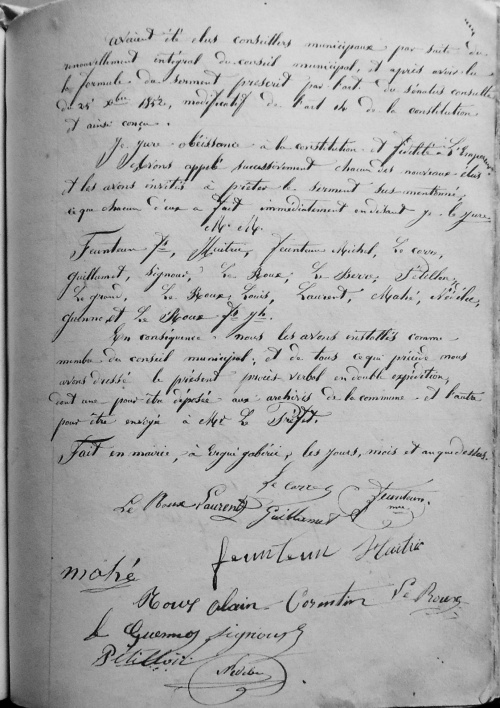 avaient été élus conseillers municipaux par suite du
renouvellement intégral du conseil municipal, et après avoir lu
la formule du serment prescrit par l'art. du Sénatus consulte
du 25 Xbre 1852, modificatif de l'art 14 de la constitution
et ainsi conçu.
Je jure obéissance à la constitution et fidélité à L'Empereur
avons appelé successivement chacun des nouveaux élus
et les avons invités à prêter le serment sus mentionné,
ce que chacun d'eux a fait immédiatement en disant je le jure
Mr. M.
Feunteun, Huitric, Feunteun Michel, Le corre,
Guillamet, Signour, Le Roux, Le Berre, Pétillon,
Le grand, Le Roux Louis, Laurent, Mahé, Nédélec,
Guenno, et Le Roux
En conséquence nous les avons installés comme
membres du conseil municipal, et de tous ce qui précède nous
avons dressé le présent procès verbal en double expédition,
dont une pour être déposée aux archives de la commune et l'autre
pour être envoyée à Mr Le Préfet.
Fait en mairie, à Ergué gabéric, les jours, mois et an que dessus.
Le corre
Le Roux Laurent Guillamet Feunteun
mre
feunteun Huitric
mahé
Roux Alain Corentin Le Roux
Le Guennou Signour
Pétillon
Nédélec